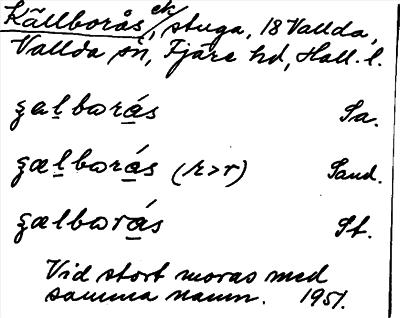 Källborås, ek/stuga, 18 Vallda,
Vallda sn, Fjäre hd, Hall. l.
ʒalborás Sa.
ʒælborás (r>r) Sand.
ʒælborás St.
Vid stort moras med
samma namn. 1951.